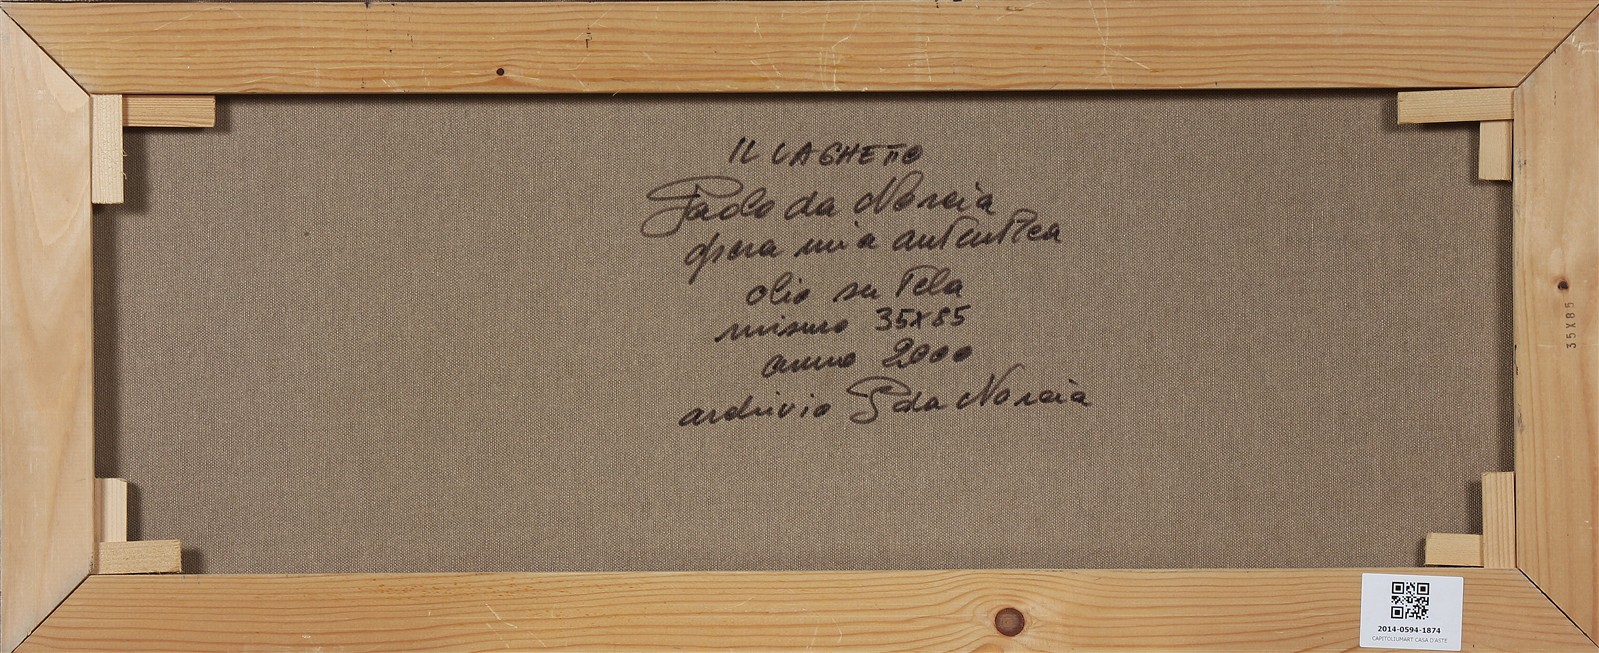 IL LAGHETTO
Paolo da Norcia
opera mia autentica
olio su tela
misura 35x85
anno 2000
archivio P da Norcia
35X85
2014-0594-1874
CAPITOLIUMART CASA D'ASTE